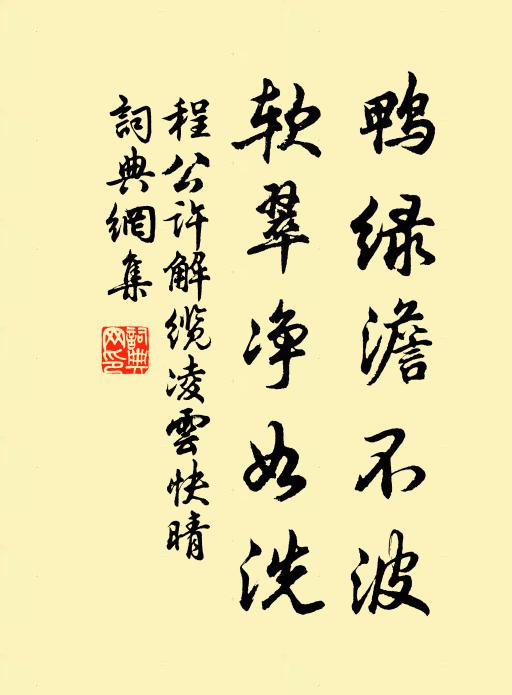 鸭绿澹不波
软翠净如洗
程公许解缆凌雲快晴
詞典網集
詞典網印